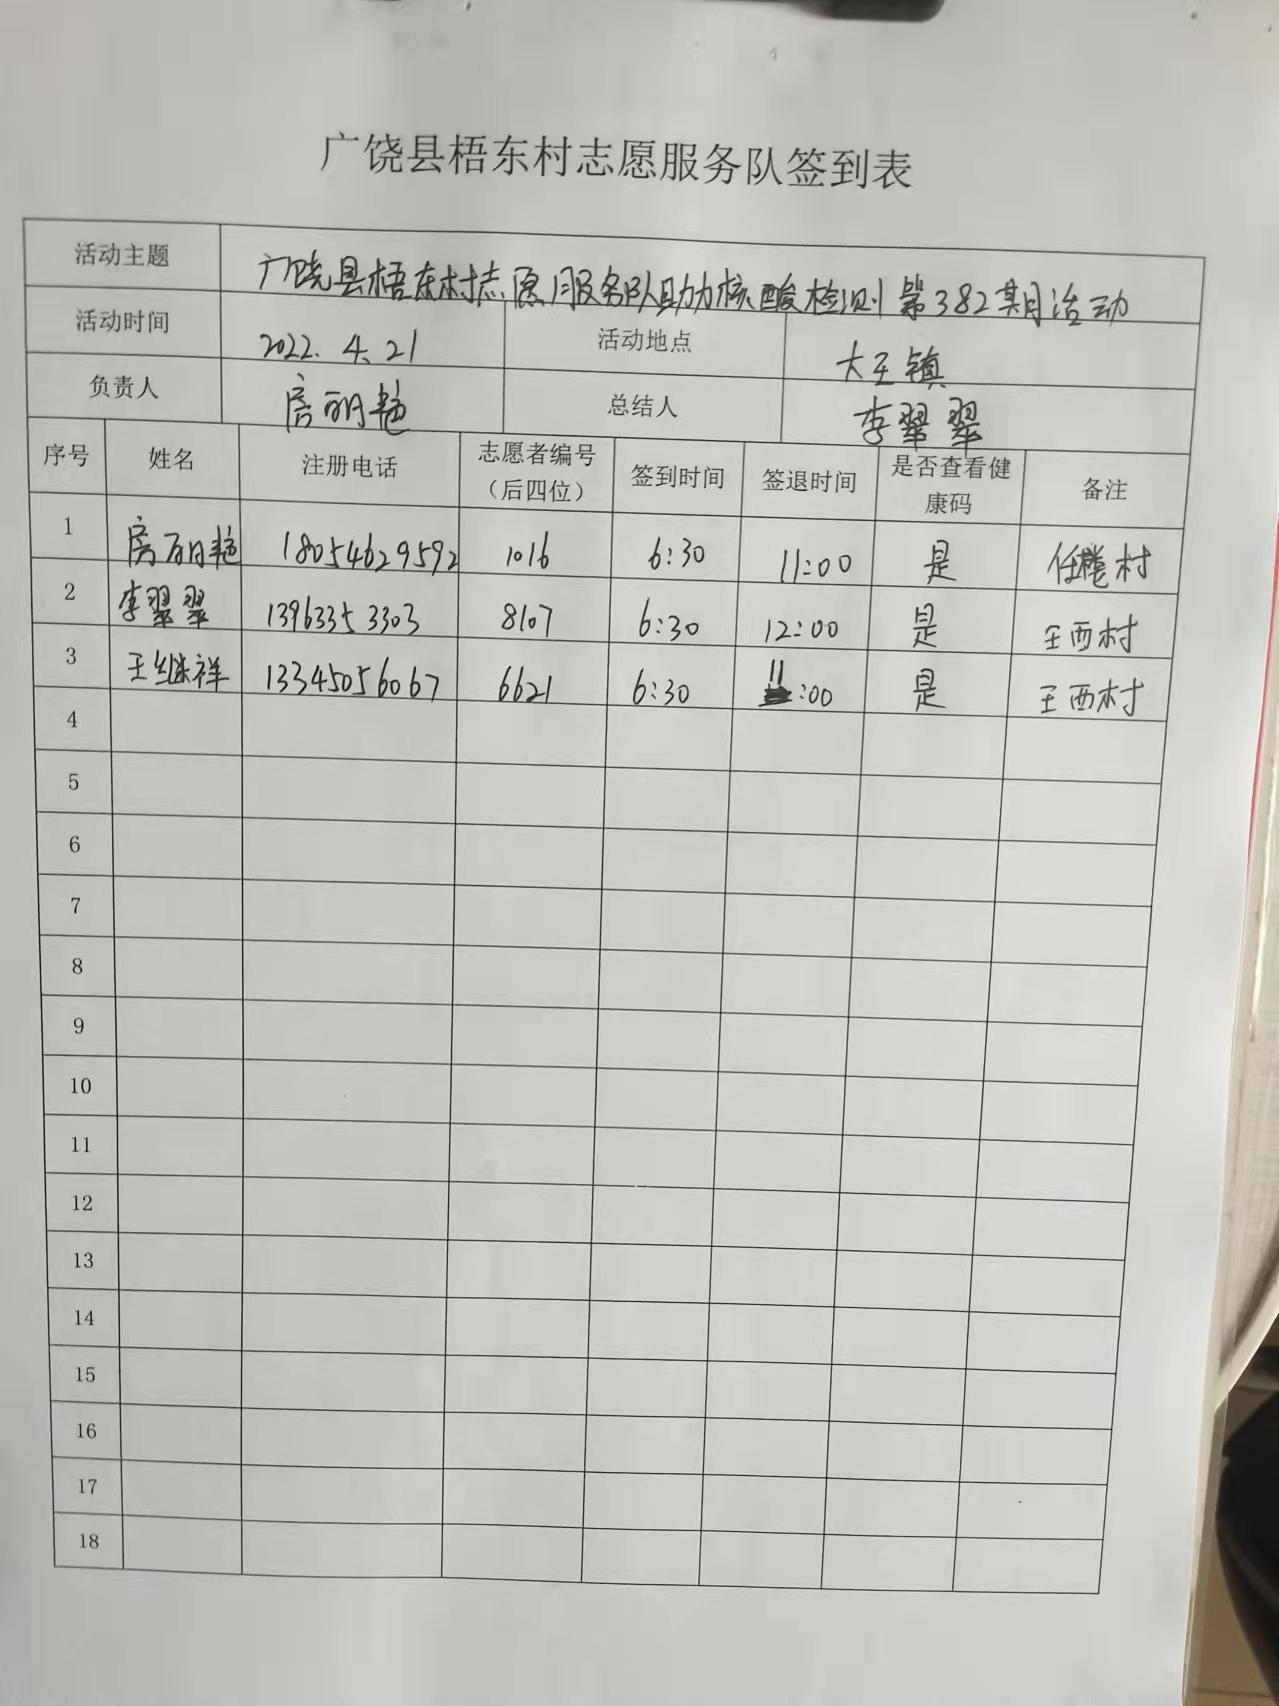 广饶县梧东村志愿服务队签到表
活动主题 广饶县梧东村志愿服务队助力核酸检测第382期活动
活动时间 2022.4.21 活动地点 大王镇
负责人 房丽艳 总结人 李翠翠
序号 姓名 注册电话 志愿者编号（后四位） 签到时间 签退时间 是否查看健康码 备注
1 房丽艳 18054629592 1016 6:30 11:00 是 任楼村
2 李翠翠 13963353303 8107 6:30 12:00 是 王西村
3 王继祥 13345056067 6621 6:30 11:00 是 王西村
4
5
6
7
8
9
10
11
12
13
14
15
16
17
18